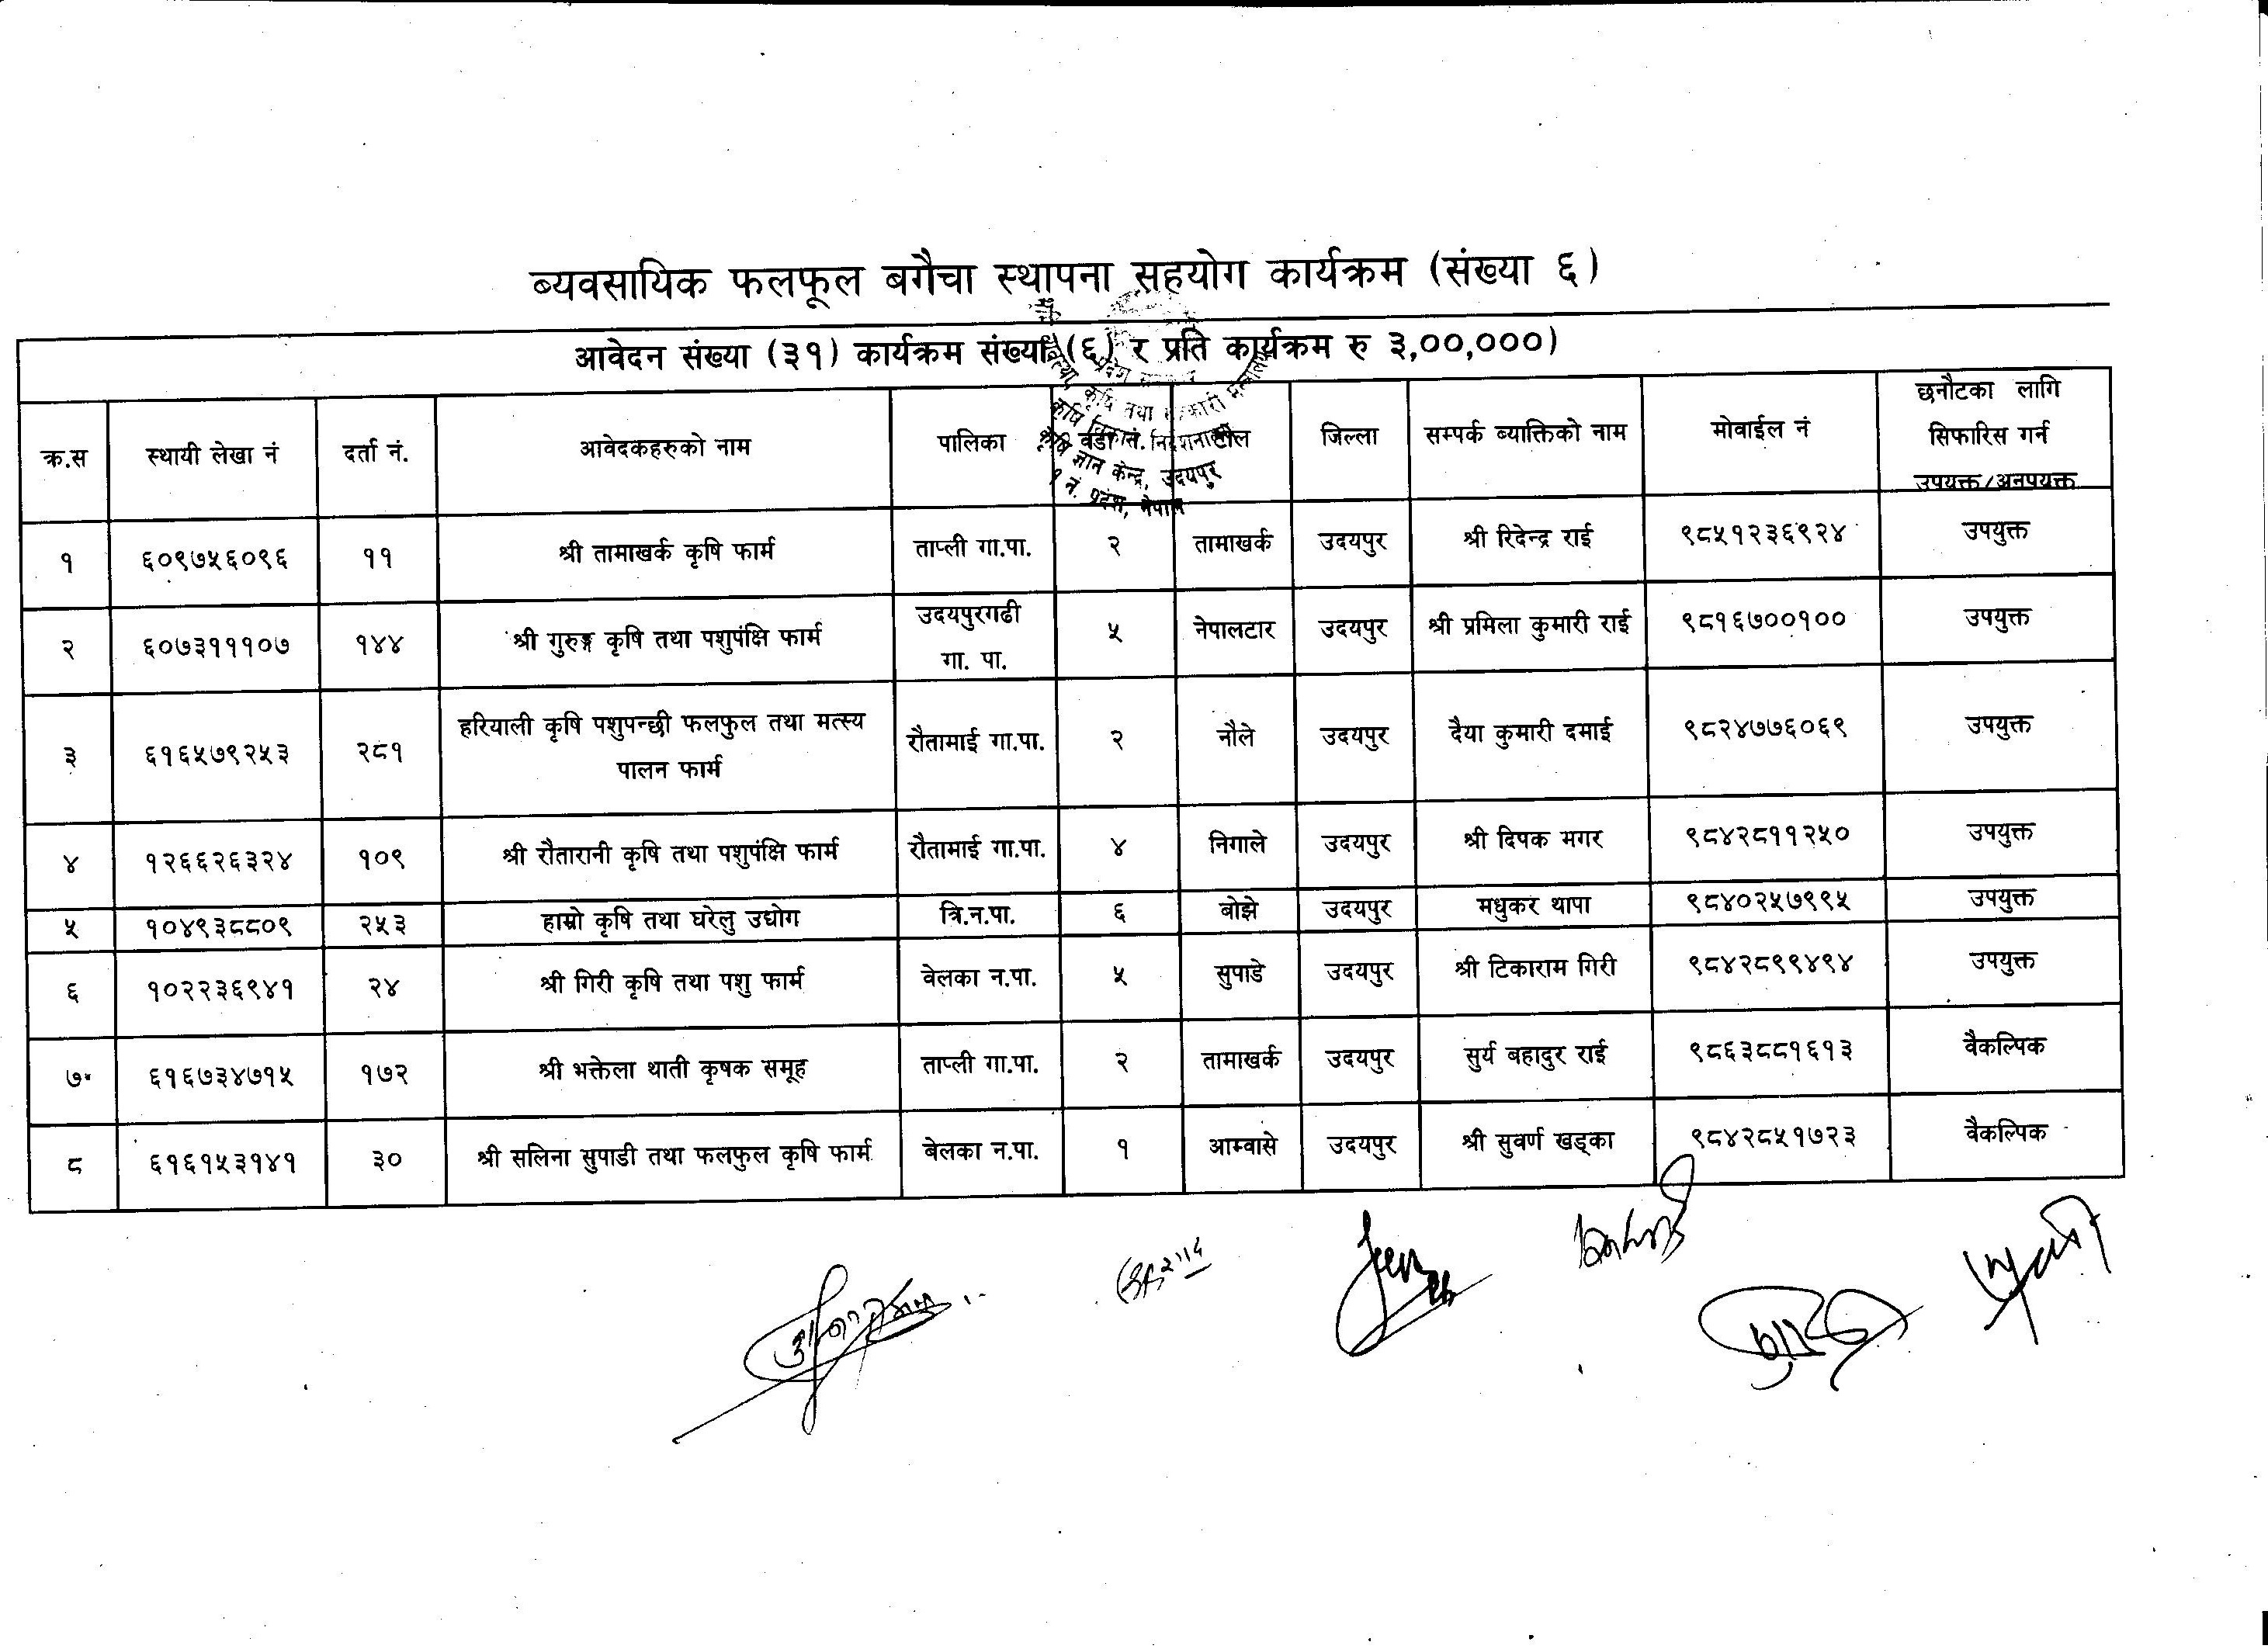 ब्यवसायिक फलफूल बगैचा स्थापना सहयोग कार्यक्रम (संख्या ६)
आवेदन संख्या (३१) कार्यक्रम संख्या (६) र प्रति कार्यक्रम रु ३,००,०००)
क्र.स स्थायी लेखा नं दर्ता नं. आवेदकहरुको नाम पालिका वडा नं. टोल जिल्ला सम्पर्क ब्याक्तिको नाम मोवाईल नं छनौटका लागि
सिफारिस गर्न
उपयुक्त/अनुपयुक्त
कृषि ज्ञान केन्द्र, उदयपुर
१ नं. प्रदेश, नेपाल
१ ६०९७५६०९६ ११ श्री तामाखर्क कृषि फार्म ताप्ली गा.पा. २ तामाखर्क उदयपुर श्री रिदेन्द्र राई ९८५१२३६९२४ उपयुक्त
२ ६०७३१११०७ १४४ श्री गुरुङ्ग कृषि तथा पशुपंक्षि फार्म उदयपुरगढी
गा. पा. ५ नेपालटार उदयपुर श्री प्रमिला कुमारी राई ९८१६७००१०० उपयुक्त
३ ६१६५७९२५३ २८१ हरियाली कृषि पशुपन्छी फलफुल तथा मत्स्य
पालन फार्म रौतामाई गा.पा. २ नौले उदयपुर दैया कुमारी दमाई ९८२४७७६०६९ उपयुक्त
४ १२६६२६३२४ १०९ श्री रौतारानी कृषि तथा पशुपंक्षि फार्म रौतामाई गा.पा. ४ निगाले उदयपुर श्री दिपक मगर ९८४२८११२५० उपयुक्त
५ १०४९३८८०९ २५३ हाम्रो कृषि तथा घरेलु उद्योग त्रि.न.पा. ६ बोझे उदयपुर मधुकर थापा ९८४०२५७९९५ उपयुक्त
६ १०२२३६९४१ २४ श्री गिरी कृषि तथा पशु फार्म वेलका न.पा. ५ सुपाडे उदयपुर श्री टिकाराम गिरी ९८४२८९९४९४ उपयुक्त
७ ६१६७३४७१५ १७२ श्री भक्तेला थाती कृषक समूह ताप्ली गा.पा. २ तामाखर्क उदयपुर सुर्य बहादुर राई ९८६३८८१६१३ वैकल्पिक
८ ६१६१५३१४१ ३० श्री सलिना सुपाडी तथा फलफुल कृषि फार्म बेलका न.पा. १ आम्वासे उदयपुर श्री सुवर्ण खड्का ९८४२८५१७२३ वैकल्पिक